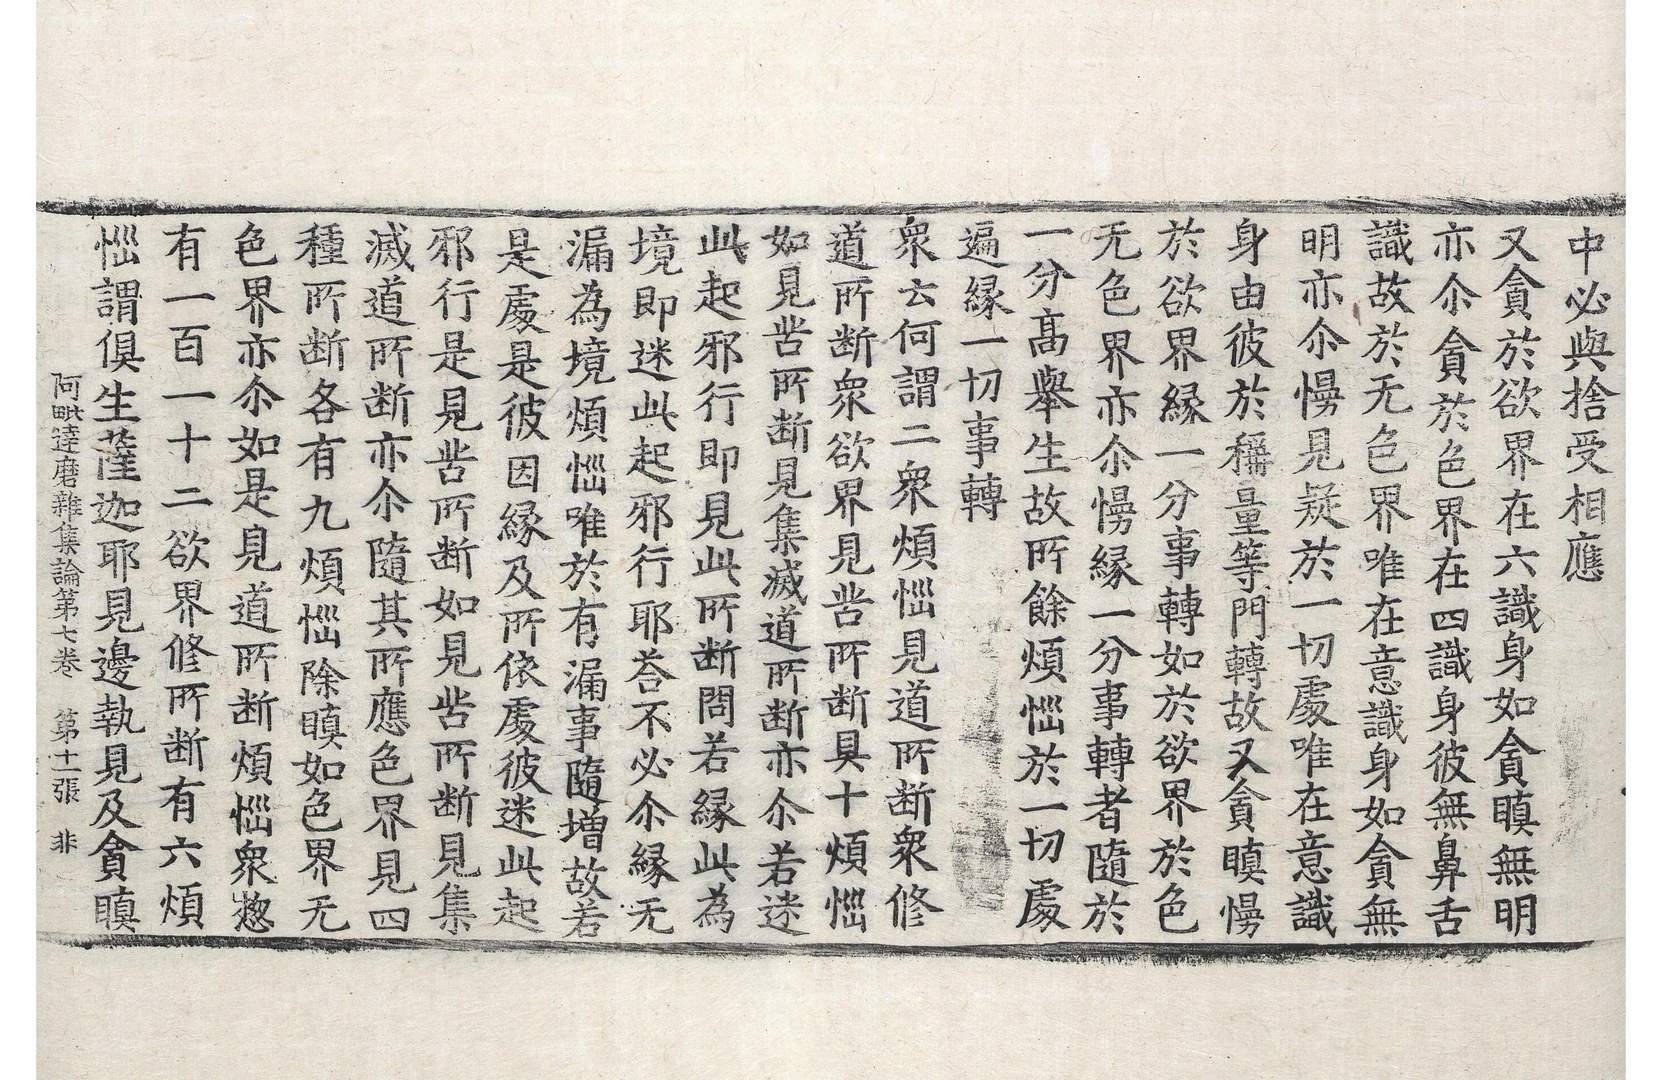 中必與捨受相應
又貪於欲界在六識身如貪瞋無明
亦尒貪於色界在四識身彼無鼻舌
識故於无色界唯在意識身如貪無
明亦尒慢見疑於一切處唯在意識
身由彼於稱量等門轉故又貪瞋慢
於欲界緣一分事轉如於欲界於色
无色界亦尒慢緣一分事轉者隨於
一分高舉生故所餘煩惱於一切處
遍緣一切事轉
衆云何謂二衆煩惱見道所断衆修
道所断衆欲界見苦所断具十煩惱
如見苦所断見集滅道所断亦尒若迷
此起邪行即見此所断問若緣此為
境即迷此起邪行耶荅不必尒緣无
漏為境煩惱唯於有漏事隨增故若
是處是彼因緣及所依處彼迷此起
邪行是見苦所断如見苦所断見集
滅道所断亦尒隨其所應色界見四
種所断各有九煩惱除瞋如色界无
色界亦尒如是見道所断煩惱衆揔
有一百一十二欲界修所断有六煩
惱謂俱生薩迦耶見邊執見及貪瞋
阿毗達磨雜集論第七卷 第十一張 非